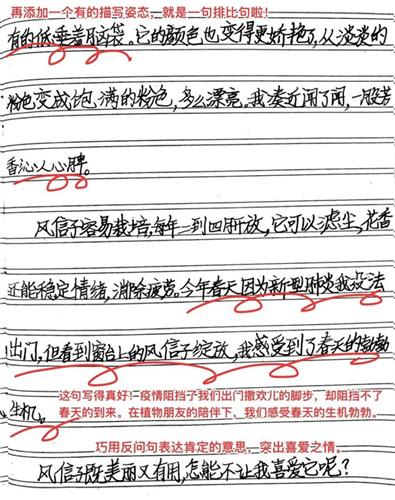 再添加一个有的描写姿态，就是一句排比句啦！
有的低垂着脑袋。它的颜色也变得更娇艳了，从淡淡的
粉色变成饱满的粉色，多么漂亮。我凑近闻了闻，一股芳
香沁人心脾。
风信子容易栽培，每年二到四月开放，它可以滤尘，花香
还能稳定情绪，消除疲劳。今年春天因为新型肺炎我没法
出门，但看到窗台上的风信子绽放，我感受到了春天的勃勃
生机。
这句写得真好！疫情阻挡了我们出门撒欢儿的脚步，却阻挡不了
春天的到来。在植物朋友的陪伴下，我们感受春天的生机勃勃。
巧用反问句表达肯定的意思，突出喜爱之情。
风信子既美丽又有用，怎能不让我喜爱它呢？